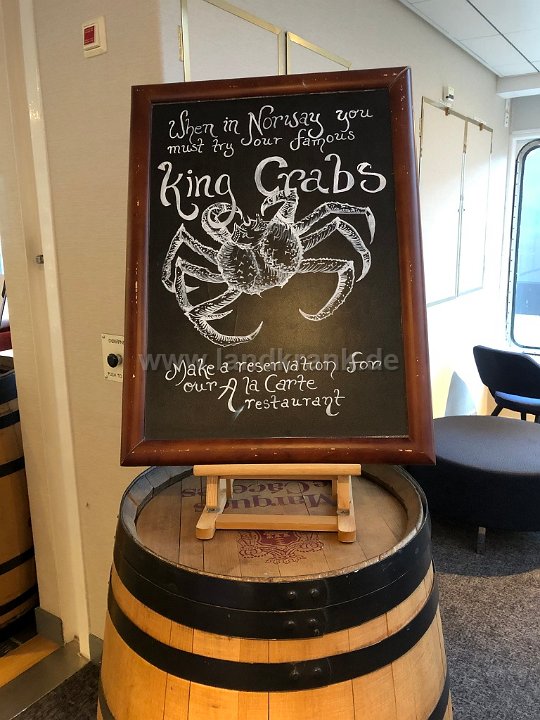 When in Norway you
must try our famous
King Crabs
www.landkrank.de
Make a reservation for
our A la Carte
restaurant
Marques
de Cáceres